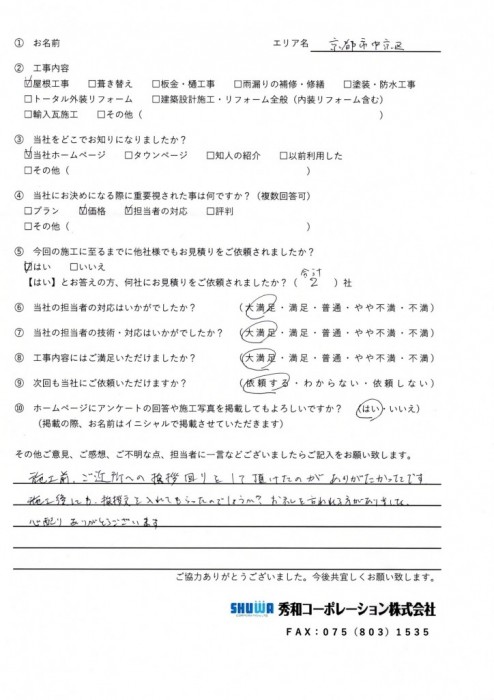 ① お名前 エリア名 京都市中京区
② 工事内容
☑屋根工事 □葺き替え □板金・樋工事 □雨漏りの補修・修繕 □塗装・防水工事
□トータル外装リフォーム □建築設計施工・リフォーム全般（内装リフォーム含む）
□輸入瓦施工 □その他（ ）
③ 当社をどこでお知りになりましたか？
☑当社ホームページ □タウンページ □知人の紹介 □以前利用した
□その他（ ）
④ 当社にお決めになる際に重要視された事は何ですか？（複数回答可）
□プラン ☑価格 ☑担当者の対応 □評判
□その他（ ）
⑤ 今回の施工に至るまでに他社様でもお見積りをご依頼されましたか？
☑はい □いいえ
【はい】とお答えの方、何社にお見積りをご依頼されましたか？（ 合計 2 ）社
⑥ 当社の担当者の対応はいかがでしたか？ （大満足・満足・普通・やや不満・不満）
⑦ 当社の担当者の技術・対応はいかがでしたか？ （大満足・満足・普通・やや不満・不満）
⑧ 工事内容にはご満足いただけましたか？ （大満足・満足・普通・やや不満・不満）
⑨ 次回も当社にご依頼いただけますか？ （依頼する・わからない・依頼しない）
⑩ ホームページにアンケートの回答や施工写真を掲載してもよろしいですか？ （はい・いいえ）
（掲載の際、お名前はイニシャルで掲載させていただきます）
その他ご意見、ご感想、ご不明な点、担当者に一言などございましたらご記入をお願い致します。
施工前、ご近所への挨拶回りをして頂けたのがありがたかったです
施工後にも、挨拶を入れてもらったのでしょうか？ お礼を言われる方がありました、
心配りありがとうございます
ご協力ありがとうございました。今後共宜しくお願い致します。
SHUWA 秀和コーポレーション株式会社
FAX：075（803）1535